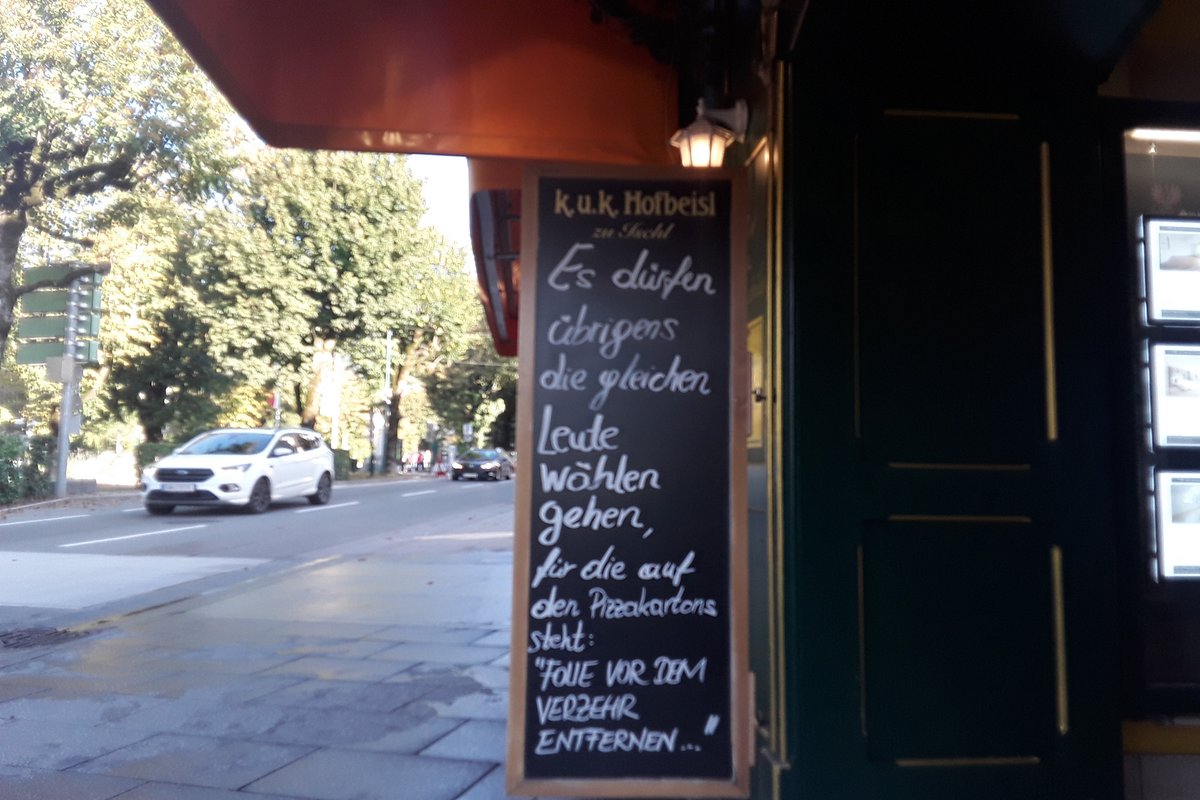 k.u.k. Hofbeisl
zu Ischl
Es dürfen
übrigens
die gleichen
Leute
wählen
gehen,
für die auf
den Pizzakartons
steht:
"FOLIE VOR DEM
VERZEHR
ENTFERNEN..."